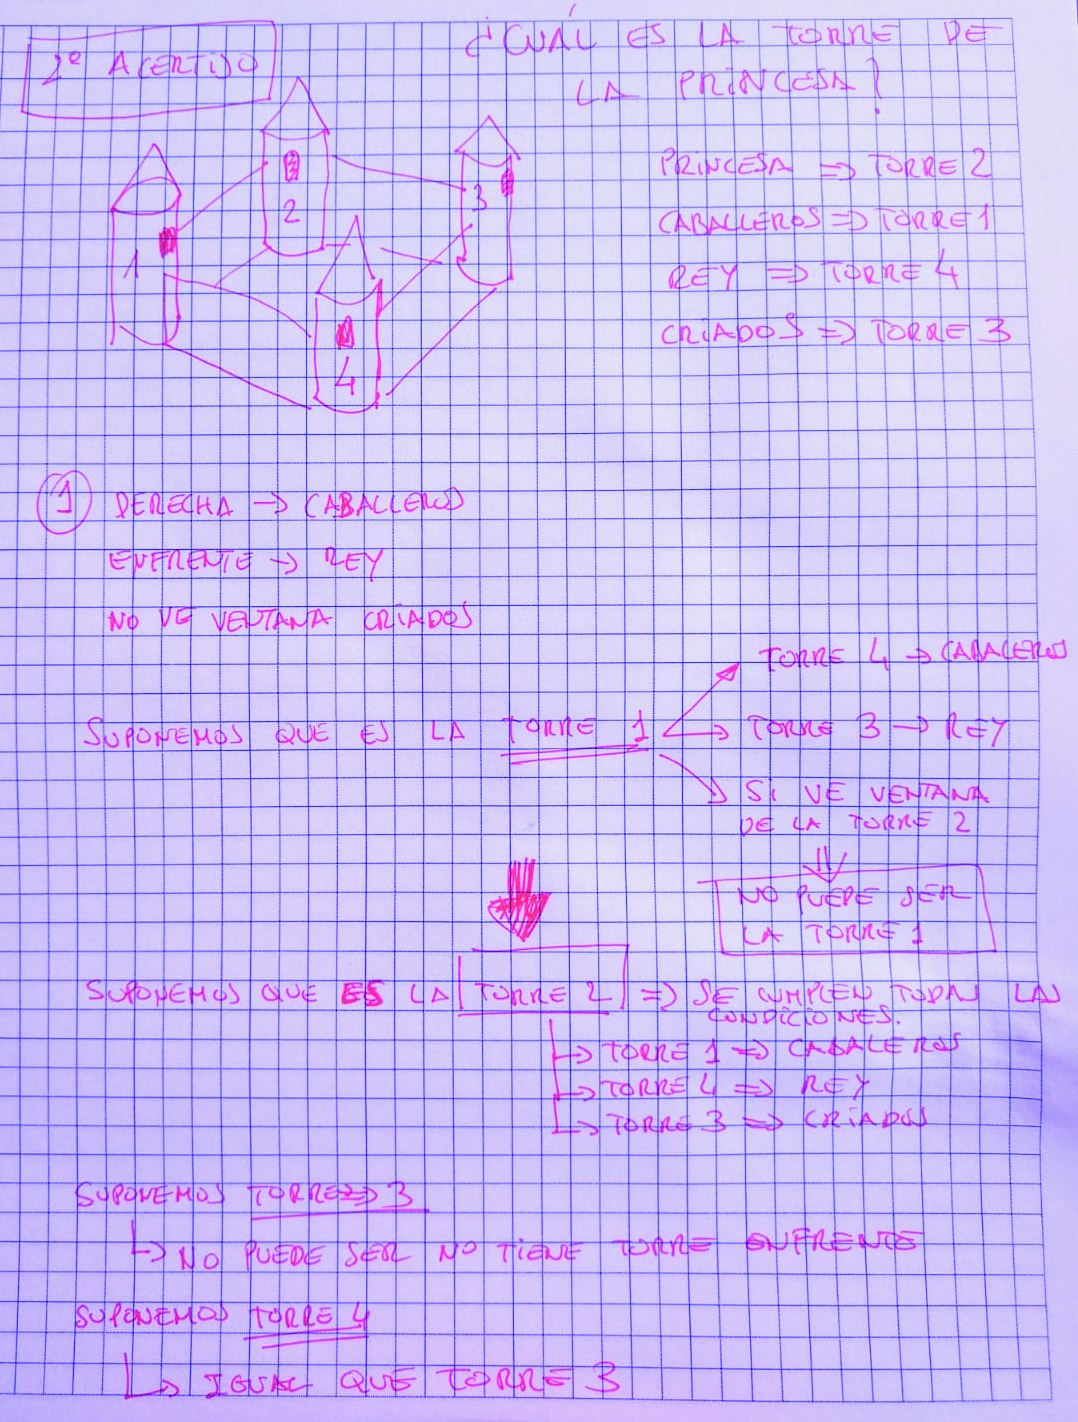 2º ACERTIJO
¿CUÁL ES LA TORRE DE
LA PRINCESA?
1
2
3
4
PRINCESA => TORRE 2
CABALLEROS => TORRE 1
REY => TORRE 4
CRIADOS => TORRE 3
1 DERECHA -> CABALLEROS
ENFRENTE -> REY
NO VE VENTANA CRIADOS
SUPONEMOS QUE ES LA TORRE 1
TORRE 4 -> CABALEROS
TORRE 3 -> REY
SI VE VENTANA
DE LA TORRE 2
NO PUEDE SER
LA TORRE 1
SUPONEMOS QUE ES LA TORRE 2 => SE CUMPLEN TODAS LAS
CONDICIONES.
TORRE 1 => CABALEROS
TORRE 4 => REY
TORRE 3 => CRIADOS
SUPONEMOS TORRE => 3
NO PUEDE SER NO TIENE TORRE ENFRENTE
SUPONEMOS TORRE 4
IGUAL QUE TORRE 3